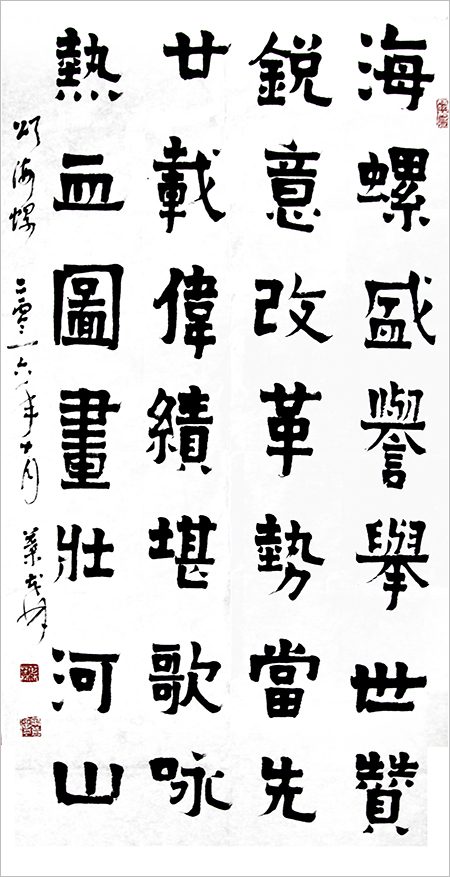 海螺盛譽舉世贊
銳意改革勢當先
廿載偉績堪歌咏
熱血圖畫壯河山
頌海螺 二零一六年十月